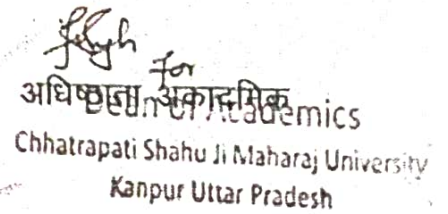 for
अधिष्ठाता अकादमिक
Dean of Academics
Chhatrapati Shahu Ji Maharaj University
Kanpur Uttar Pradesh